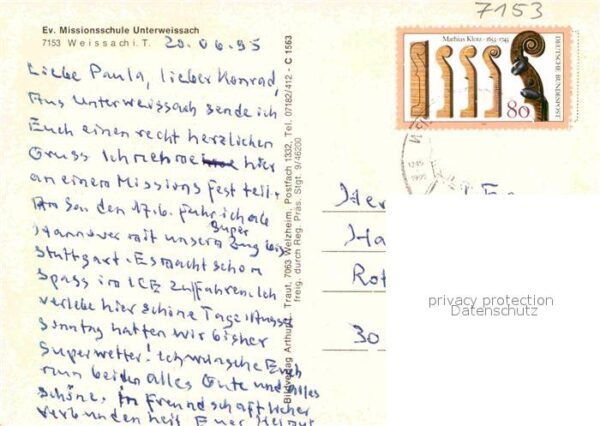 Ev. Missionsschule Unterweissach
7153 Weissach i. T.
20.06.95
7153
Liebe Paula, lieber Konrad,
Aus Unterweissach sende ich
Euch einen recht herzlichen
Gruss. Ich nehme hier
an einem Missionsfest teil.
Am Son den 17.6. fuhr ich ab
Hannover mit unserm Super Zug bis
Stuttgart. Es macht schon
Spass im ICE zu fahren. Ich
verlebe hier schöne Tage.
Sonntag hatten wir bisher
Superwetter! Ich wünsche Euch
nun beiden alles Gute und alles
Schöne. In Freundschaftlicher
Verbundenheit Euer Helmut
Bildverlag Arthur F. Traut, 7063 Welzheim, Postfach 1332, Tel. 07182/412 - C 1563
freig. durch Reg. Präs. Stgt. 9/46200
Mathias Klotz · 1653-1743
DEUTSCHE BUNDESPOST
80
Her
Ha
Rot
30
privacy protection
Datenschutz